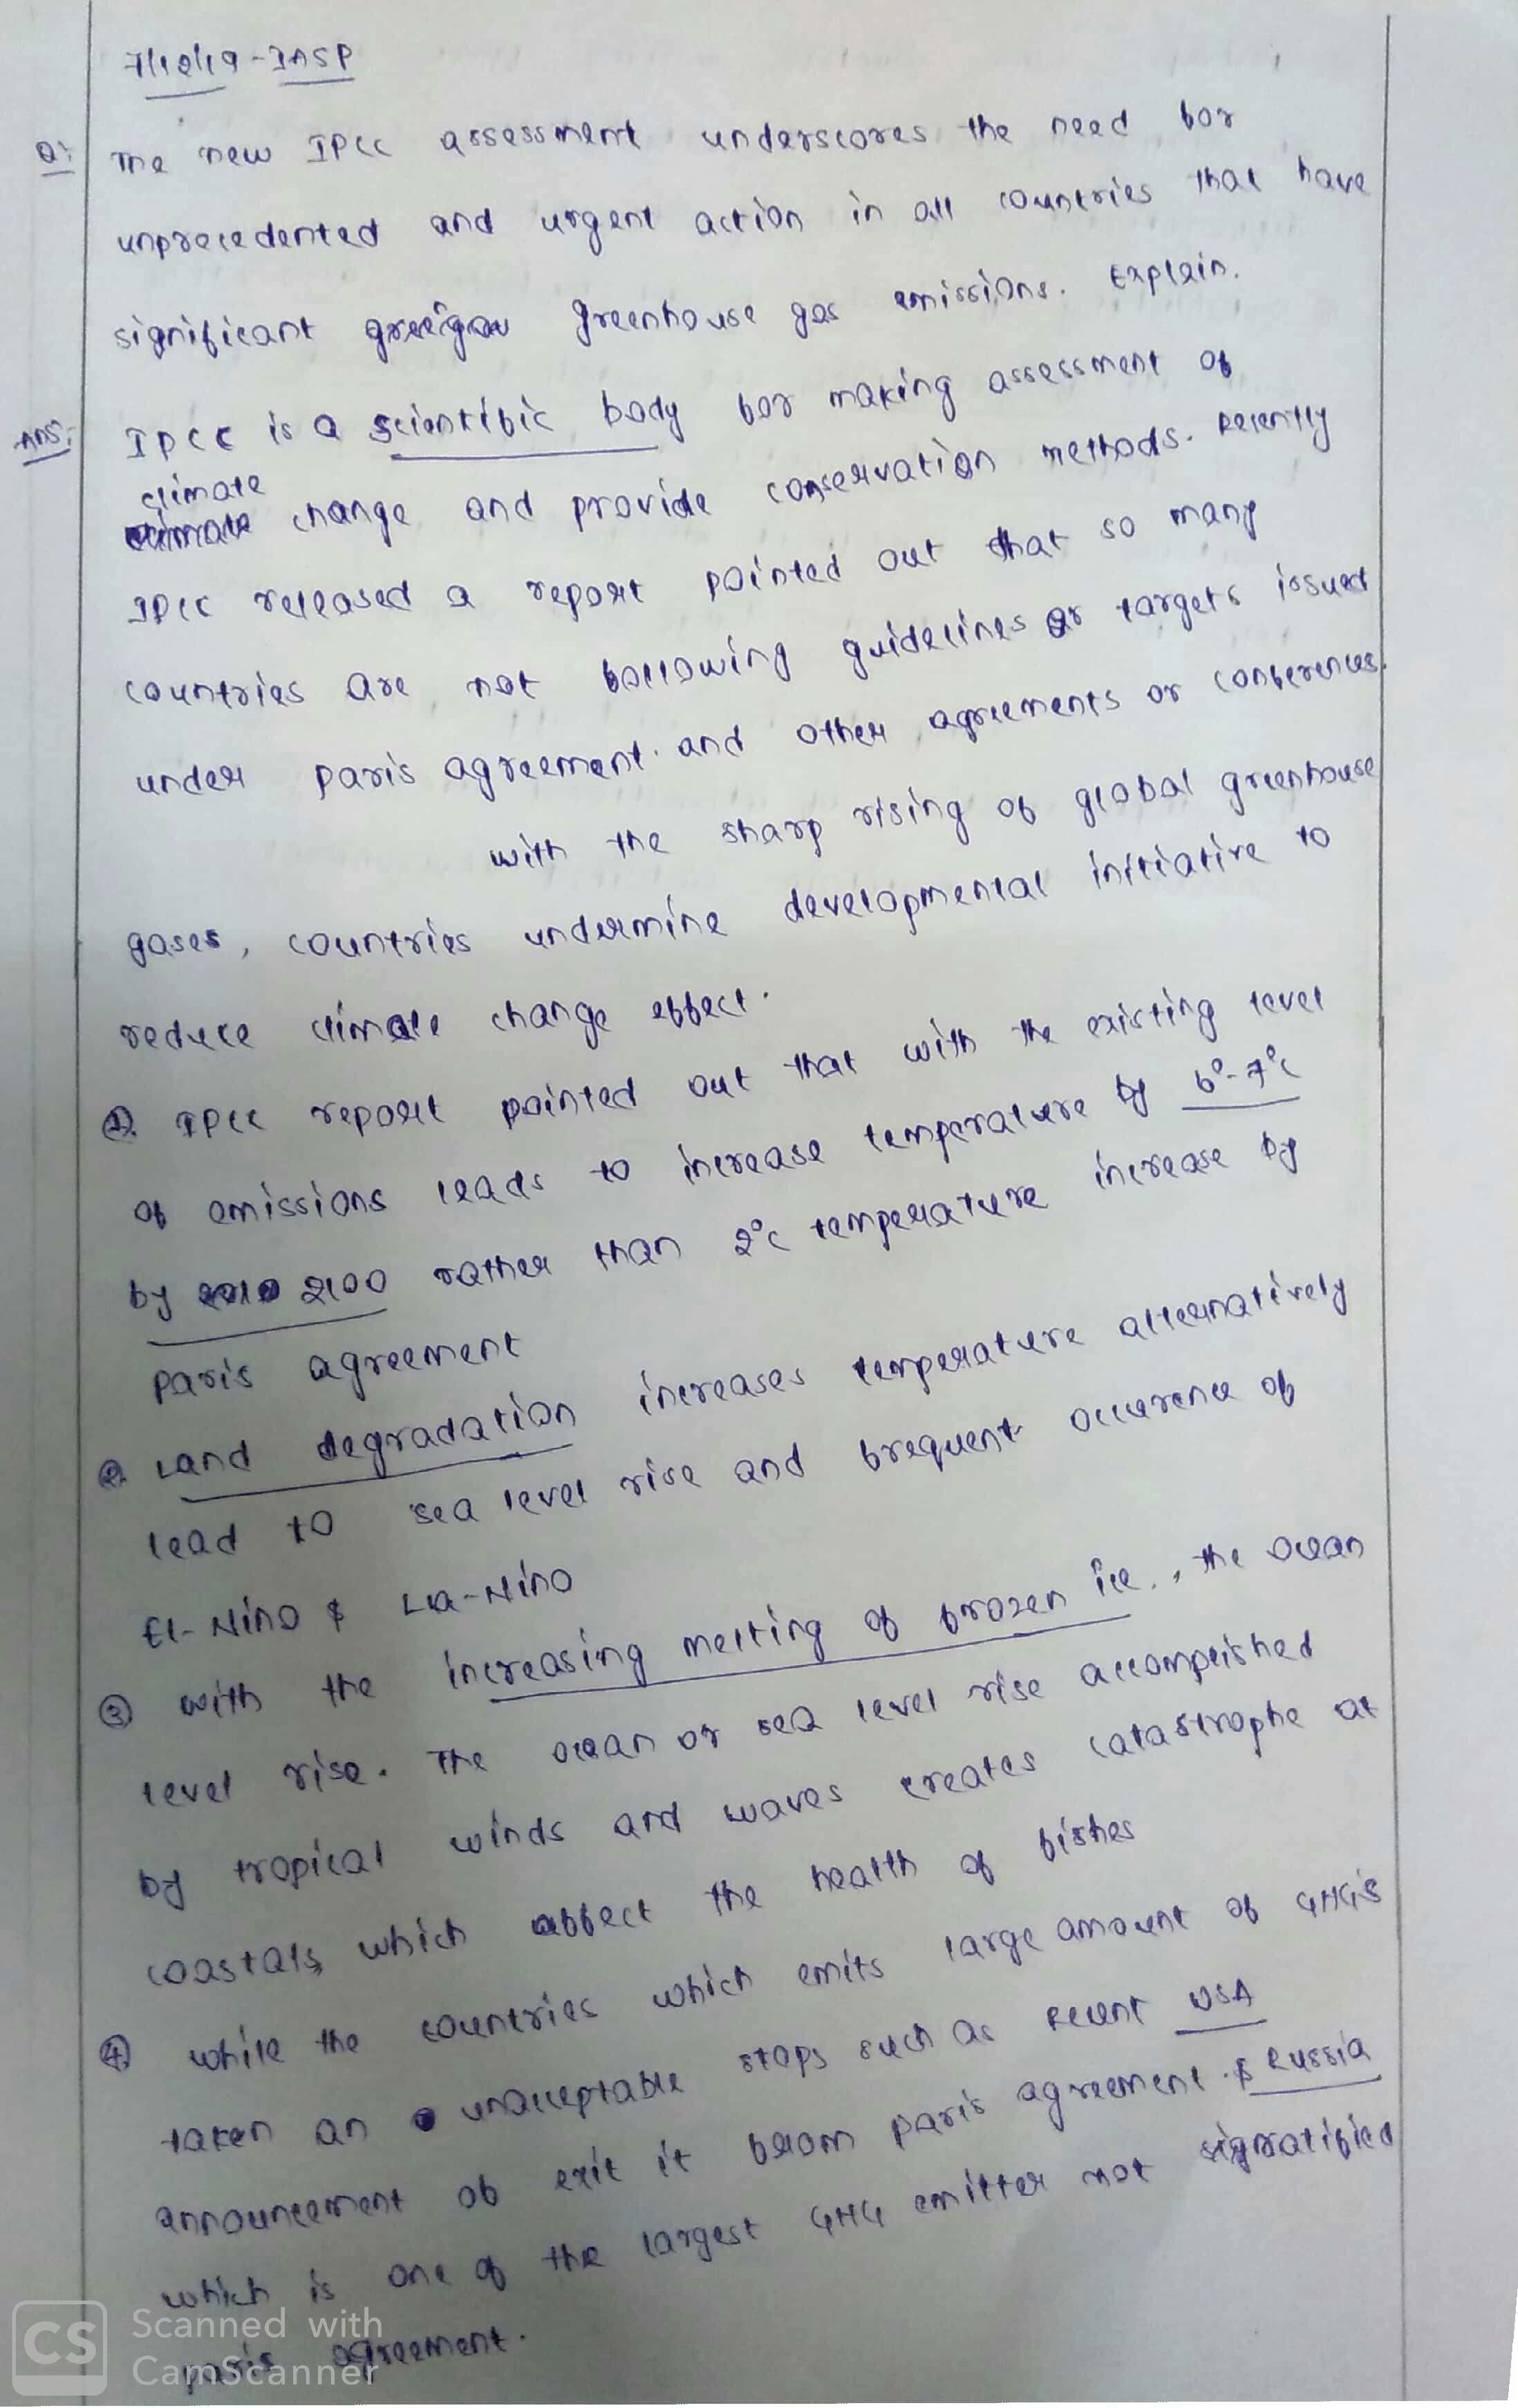 7/12/19 - IASP
Q: The new IPCC assessment underscores the need for
unprecedented and urgent action in all countries that have
significant greenhouse gas emissions. Explain.
Ans: IPCC is a scientific body for making assessment of
climate
climate change and provide conservation methods. Recently
IPCC released a report pointed out that so many
countries are not following guidelines or targets issued
under paris agreement. and other agreements or conferences.
with the sharp rising of global greenhouse
gases, countries undermine developmental initiative to
reduce climate change effect.
①. IPCC report pointed out that with the existing level
of emissions leads to increase temperature by 6°-7°c
by 2100 rather than 2°c temperature increase by
paris agreement
②. Land degradation increases temperature alternatively
lead to sea level rise and frequent occurence of
El-Nino & La-Nino
③ with the increasing melting of frozen ice., the ocean
level rise. The ocean or sea level rise accomplished
by tropical winds and waves creates catastrophe at
coastals, which affect the health of fishes
④ while the countries which emits large amount of GHG's
taken an unacceptable steps such as recent USA
announcement of exit it from paris agreement. & Russia
which is one of the largest GHG emitter not ratified
paris agreement.
CS Scanned with
CamScanner